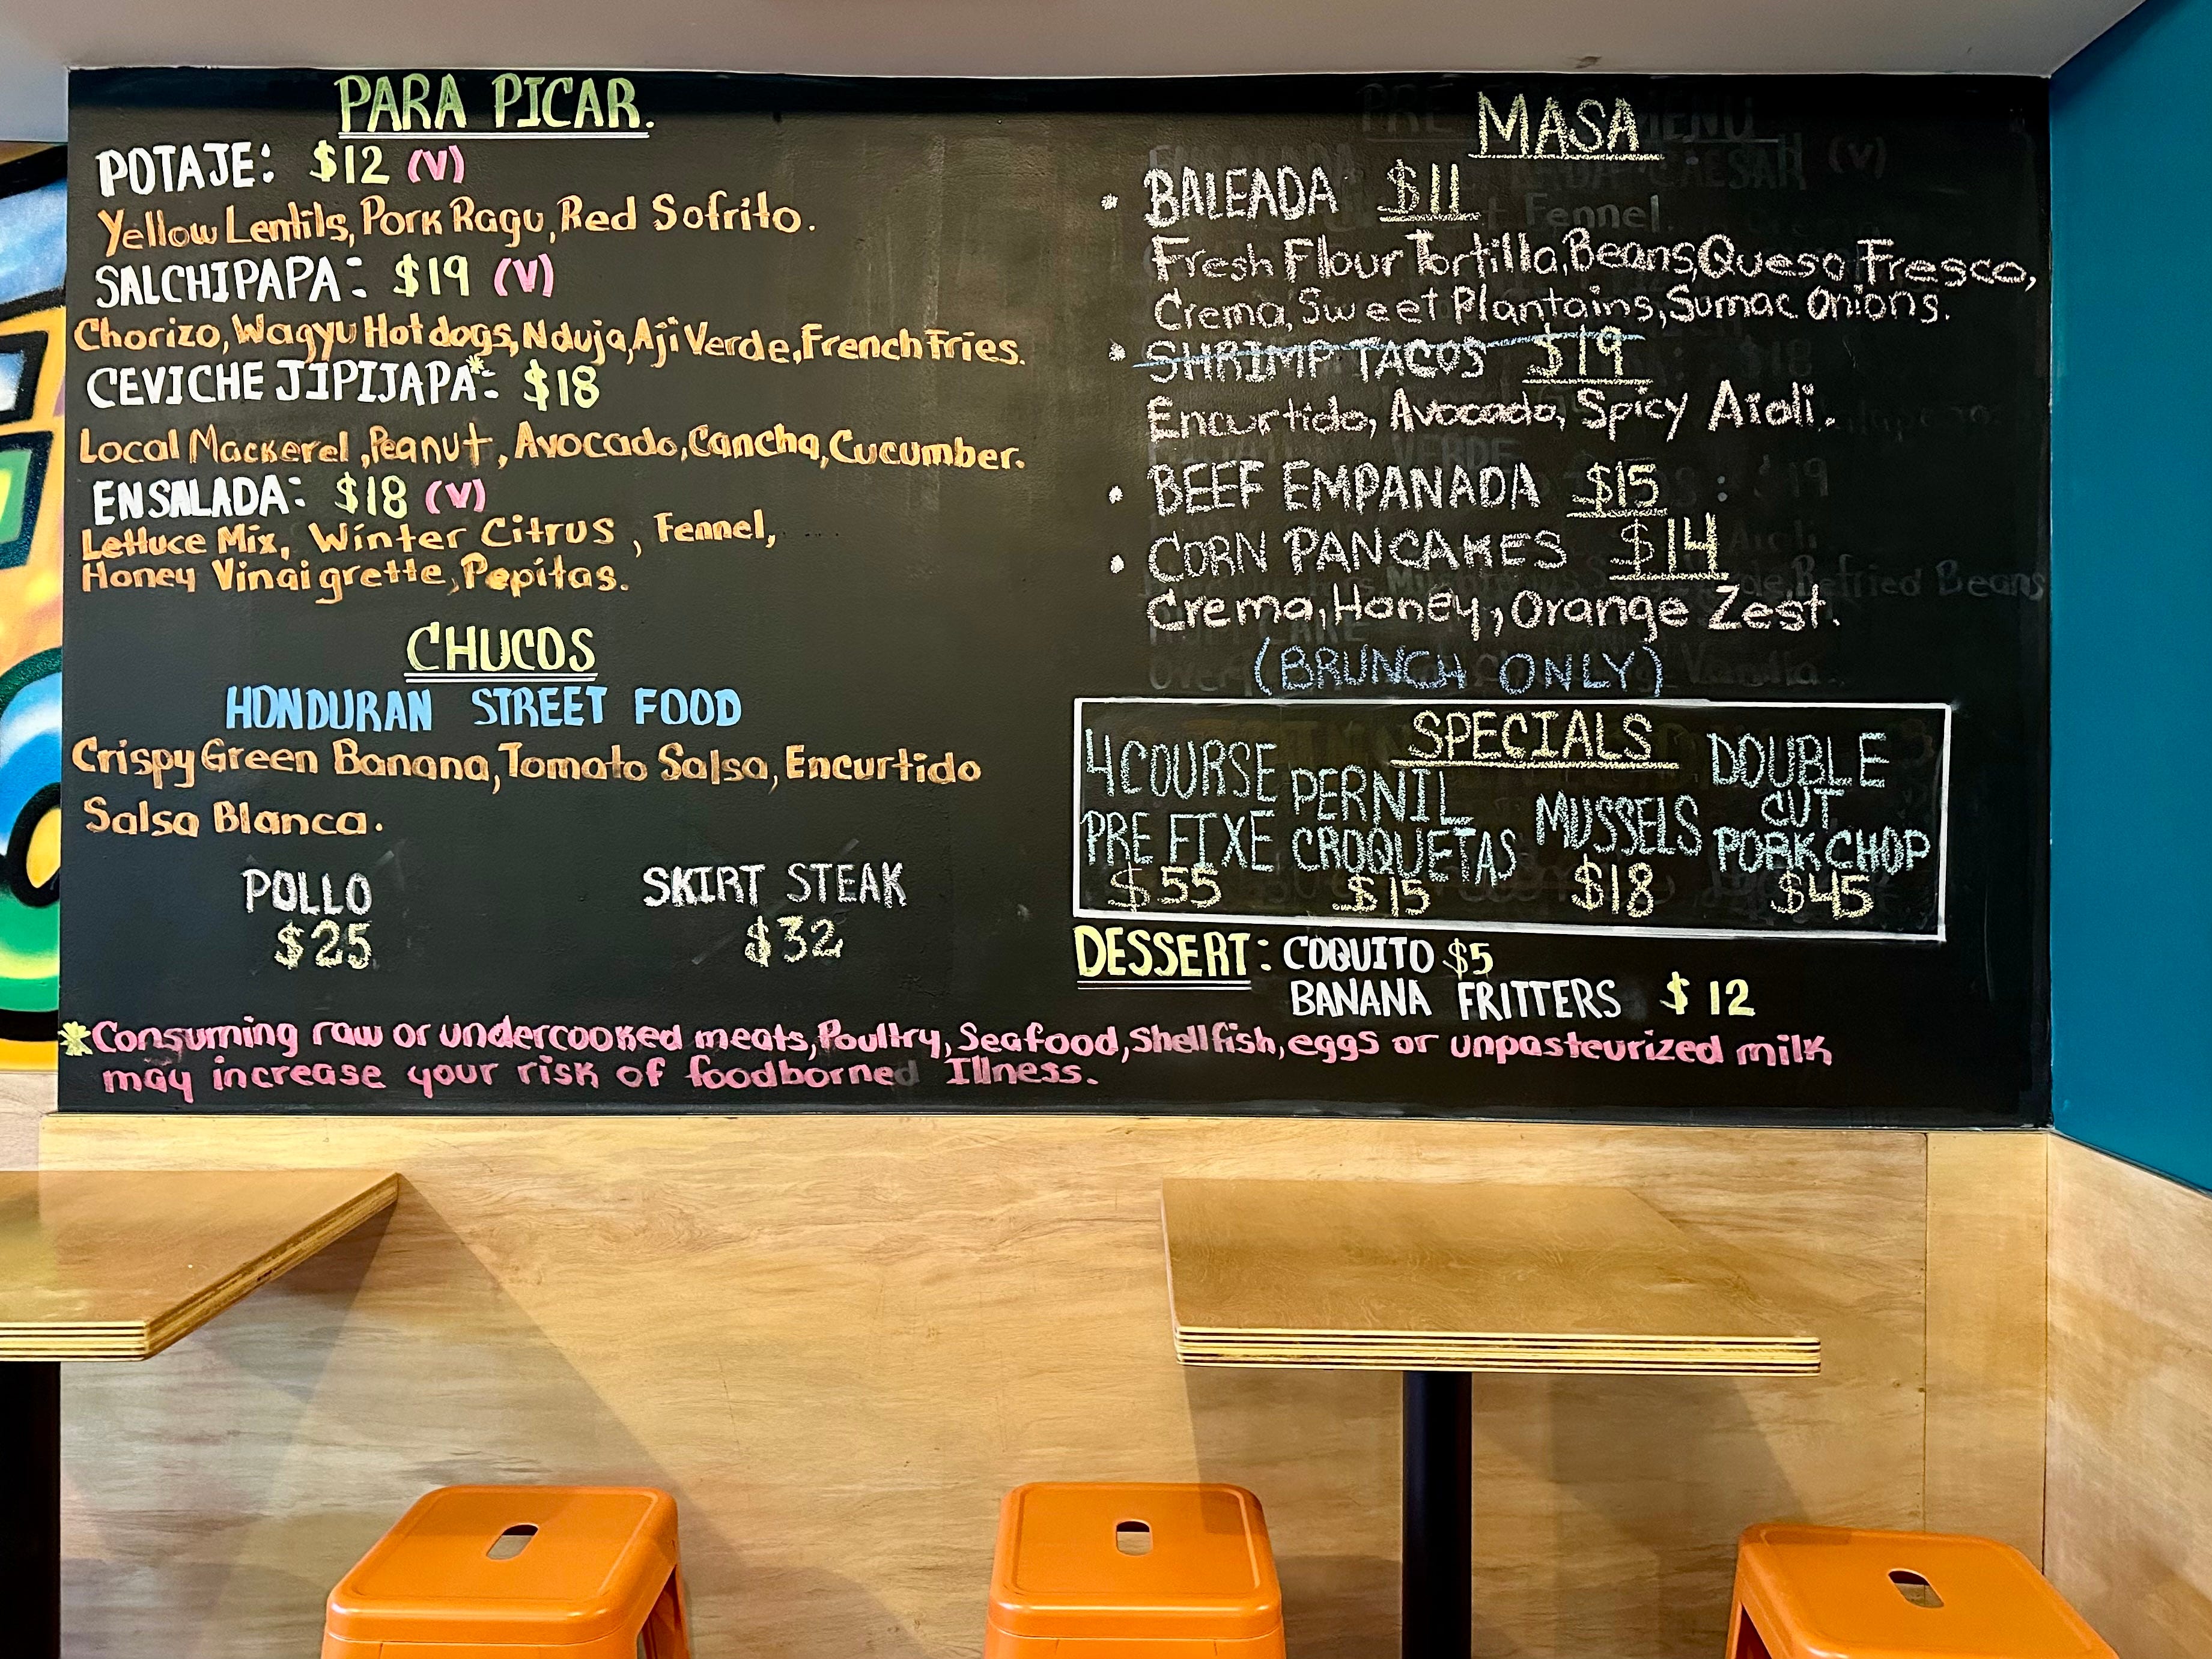 PARA PICAR.
POTAJE: $12 (V)
Yellow Lentils, Pork Ragu, Red Sofrito.
SALCHIPAPA: $19 (V)
Chorizo, Wagyu Hotdogs, Nduja, Aji Verde, French Fries.
CEVICHE JIPIJAPA*: $18
Local Mackerel, Peanut, Avocado, Cancha, Cucumber.
ENSALADA: $18 (V)
Lettuce Mix, Winter Citrus, Fennel,
Honey Vinaigrette, Pepitas.
CHUCOS
HONDURAN STREET FOOD
Crispy Green Banana, Tomato Salsa, Encurtido
Salsa Blanca.
POLLO
$25
SKIRT STEAK
$32
MASA
• BALEADA $11
Fresh Flour Tortilla, Beans, Queso Fresco,
Crema, Sweet Plantains, Sumac Onions.
• SHRIMP TACOS $19
Encurtido, Avocado, Spicy Aioli.
• BEEF EMPANADA $15
• CORN PANCAKES $14
Crema, Honey, Orange Zest.
(BRUNCH ONLY)
SPECIALS
4 COURSE
PRE FIXE
$55
PERNIL
CROQUETAS
$15
MUSSELS
$18
DOUBLE
CUT
PORK CHOP
$45
DESSERT: COQUITO $5
BANANA FRITTERS $12
*Consuming raw or undercooked meats, Poultry, Seafood, Shellfish, eggs or unpasteurized milk
may increase your risk of foodborned Illness.